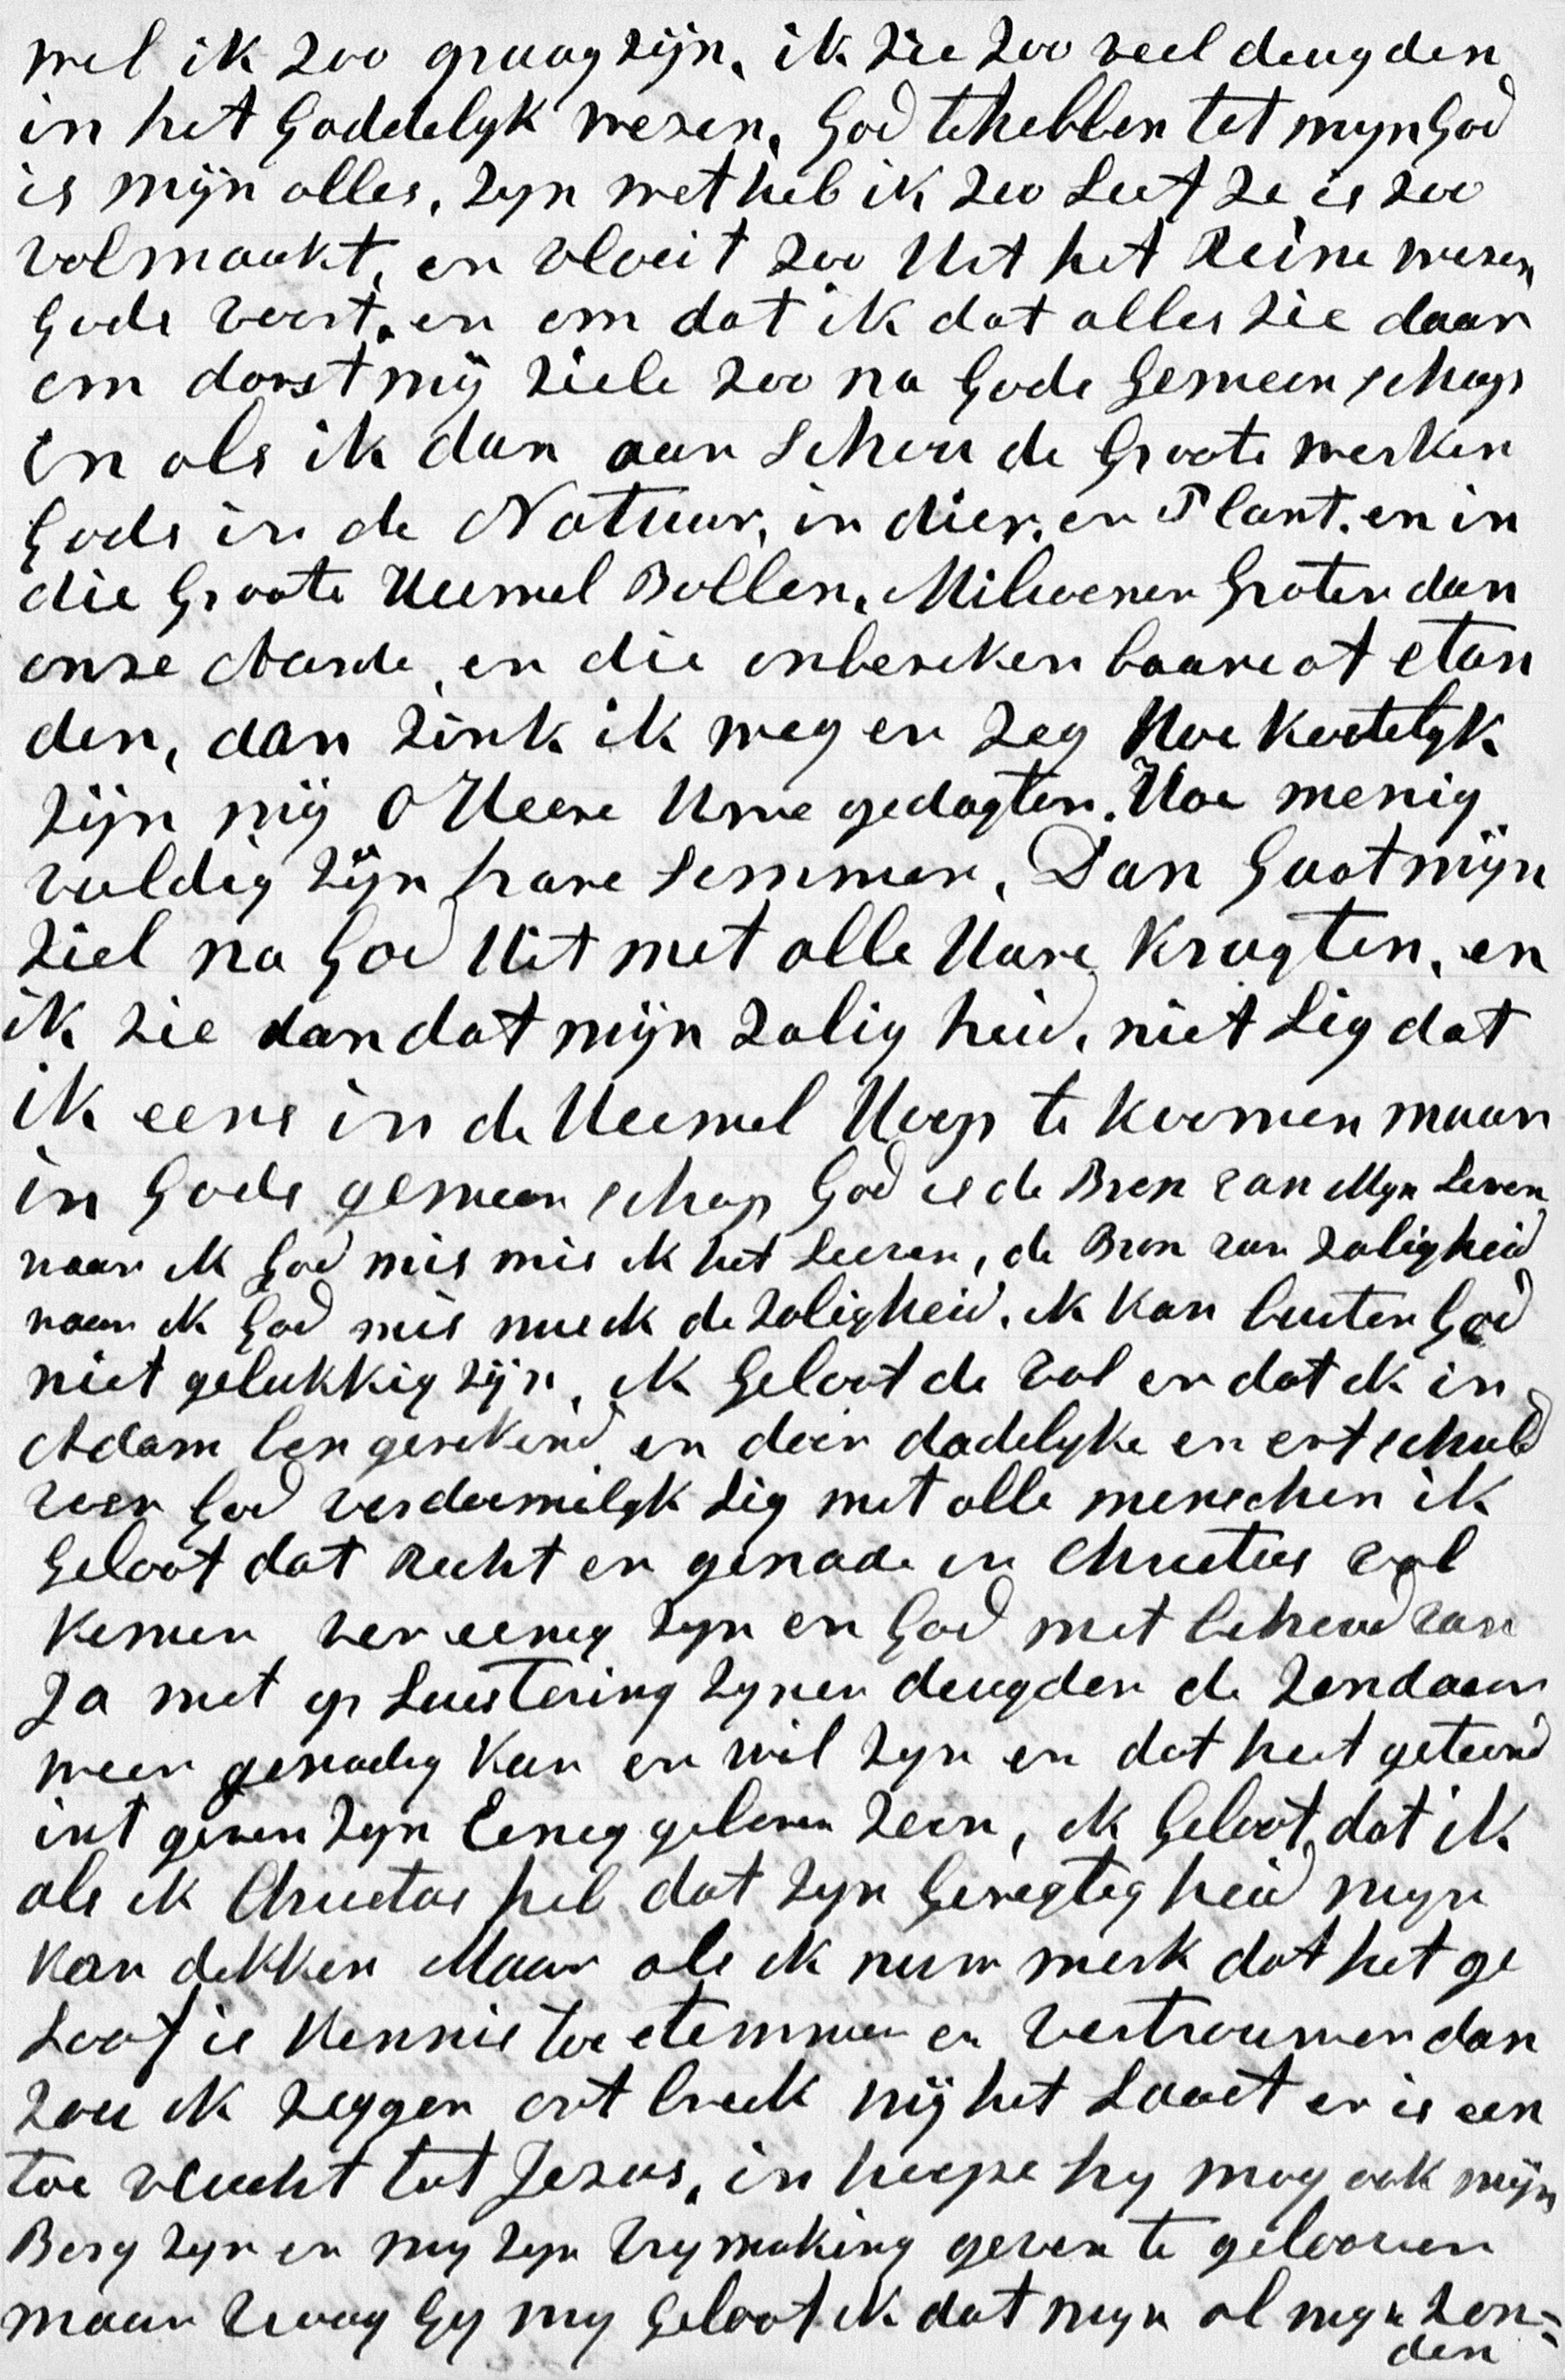 wil ik zoo graag zijn. ik zie zoo veel deugden
in het Goddelyk wezen. God te hebben tot myn God
is mijn alles. zyn wet heb ik zoo Lief Ze is zoo
volmaakt, en vloeit zoo Uit het Reine wezen
Gods voort. en om dat ik dat alles zie daar
om dorst mij ziele zoo na Gods Gemeenschap
En als ik dan aan Schou de Groote werken
Gods in de Natuur, in dier. en Plant. en in
die Groote Heemel Bollen. Milioenen Groter dan
onze Aarde, en die onbereken baare af stan
den, dan zink ik weg en zeg Hoe kostelyk
zijn mij O Heere Uwe gedagten. Hoe menig
vuldig zijn hare Sommen. Dan Gaat mijn
ziel na God Uit met alle Hare Kragten. en
ik zie dan dat mijn zalig heid. niet Lig dat
ik eens in de Heemel Hoop te koomen maar
in Gods gemeen schap God is de Bron van Myn Leven
waar ik God mis mis ik het Leeven, de Bron van zaligheid
waar ik God mis mis ik de zaligheid. ik kan buiten God
niet gelukkig zijn, ik Geloof de val en dat ik in
Adam ben gerekend en door dadelyke en erf schuld
voor God verdoemelyk Lig met alle menschen ik
Geloof dat Recht en genade in Christus vol
komen ver eenig zyn en God met behoud van
Ja met op Luistering zynen deugden de zondaar
weer genadig kan en wil zyn en dat heet getoond
int geven zyn Eenig geboren zoon, ik Geloof, dat ik
als ik Christus heb dat zyn Geregtig heid myn
kan dekken Maar als ik nuw merk dat het ge
Loof is Kennis toe stemmen en vertrouwen dan
zou ik zeggen ont breek mij het Laast er is een
toe vlucht tot Jezus. in hoope hy mag ook mijn
Borg zyn en my zyn Vrymaking geven te gelooven
maar Vraag Gy my Geloof ik dat myn al myn zon=
den